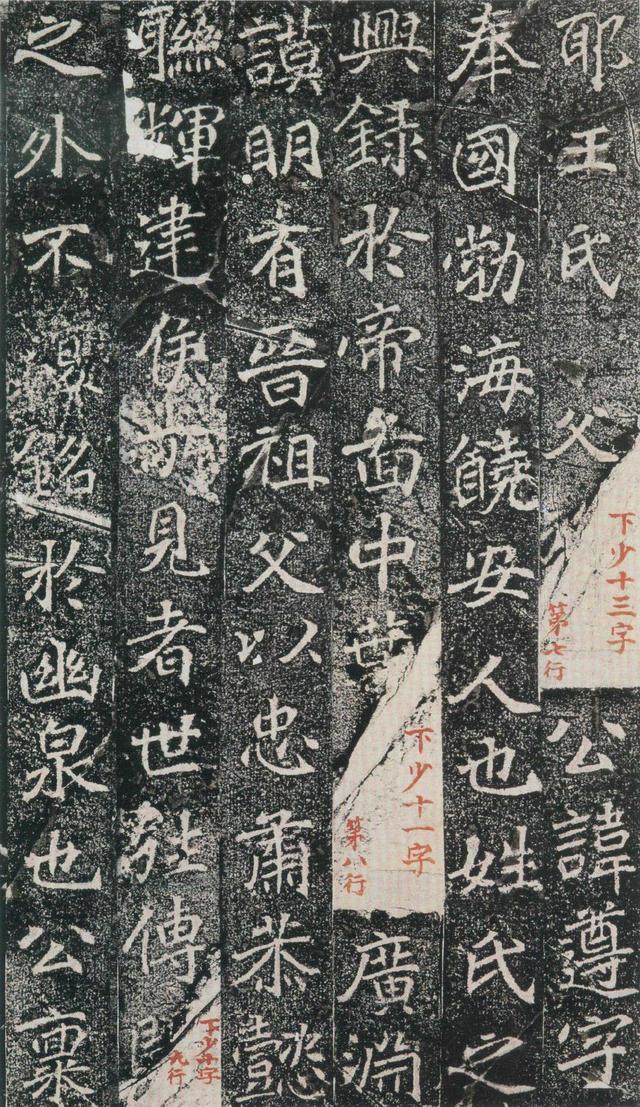 耶王氏 父
下少十三字
第七行
公諱遵字
奉國勃海饒安人也姓氏之
興録於帝啚中葉
下少十一字
第八行
廣淵
謨明有晉祖父以忠肅恭懿
聯輝建侯見者世傳
下少十字
九行
之外不銘於幽泉也公稟